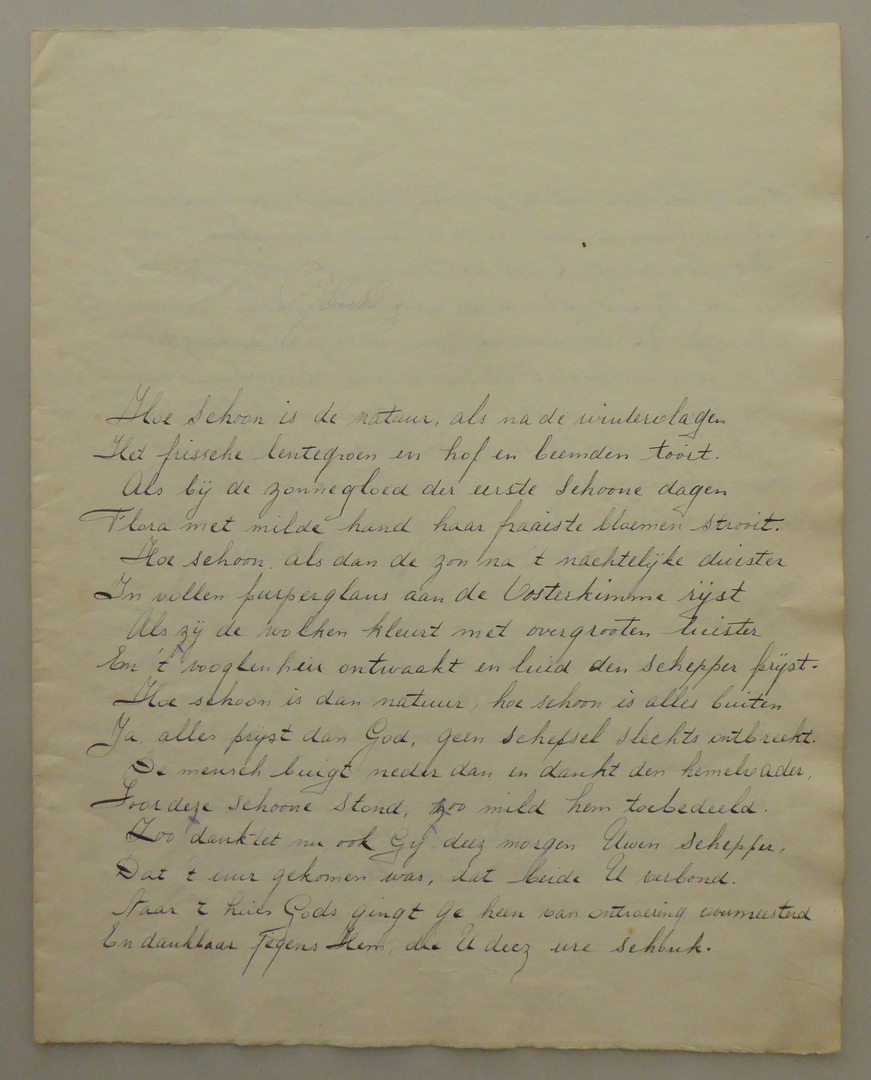 Hoe schoon is de natuur, als na de wintervlagen
Het frissche lentegroen en hof en beemden tooit.
Als bij de zonnegloed der eerste schoone dagen
Flora met milde hand haar fraaiste bloemen strooit.
Hoe schoon, als dan de zon na 't nachtelijke duister
In vollen purperglans aan de Oosterkimme rijst
Als zij de wolken kleurt met overgrooten luister
En 't vooglenheir ontwaakt en luid den schepper prijst.
Hoe schoon is dan natuur, hoe schoon is alles buiten
Ja, alles prijst dan God, geen schepsel slechts ontbreekt.
De mensch buigt neder dan en dankt den hemelvader,
Voor deze schoone stond, zoo mild hem toebedeeld.
Zoo danktet nu ook Gij, deez morgen Uwen schepper,
Dat 't uur gekomen was, dat beide U verbond.
Naar 't huis Gods gingt Ge heen van ontroering overmeesterd
En dankbaar tegens Hem, die U deez ure schonk.